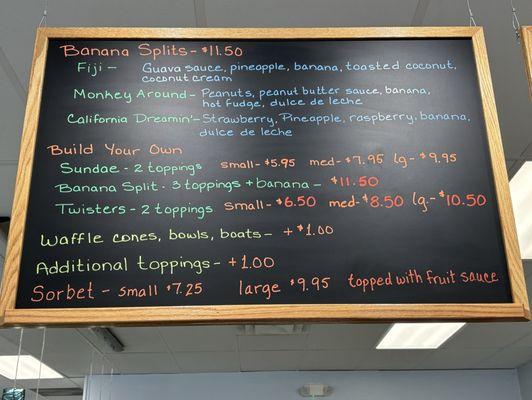 Banana Splits - $11.50
Fiji - Guava sauce, pineapple, banana, toasted coconut,
coconut cream
Monkey Around - Peanuts, peanut butter sauce, banana,
hot fudge, dulce de leche
California Dreamin' - Strawberry, Pineapple, raspberry, banana,
dulce de leche
Build Your Own
Sundae - 2 toppings small - $5.95 med - $7.95 lg - $9.95
Banana Split - 3 toppings + banana - $11.50
Twisters - 2 toppings small - $6.50 med - $8.50 lg - $10.50
Waffle cones, bowls, boats - + $1.00
Additional toppings - +1.00
Sorbet - small $7.25 large $9.95 topped with fruit sauce